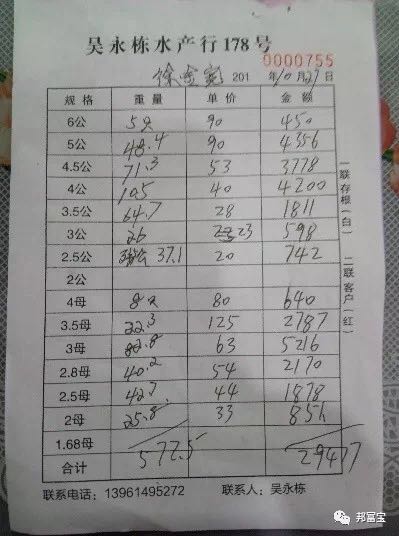 吴永栋水产行178号
0000755
徐金宽 201 年10月27日
规格 重量 单价 金额
6公 5 90 450
5公 48.4 90 4356
4.5公 71.3 53 3778
4公 105 40 4200
3.5公 64.7 28 1811
3公 26 23 598
2.5公 37.1 20 742
2公
4母 8 80 640
3.5母 22.3 125 2787
3母 82.8 63 5216
2.8母 40.2 54 2170
2.5母 42.7 44 1878
2母 25.8 33 851
1.68母
合计 577.5 29477
一联存根(白)
二联客户(红)
联系电话:13961495272 联系人:吴永栋
邦富宝